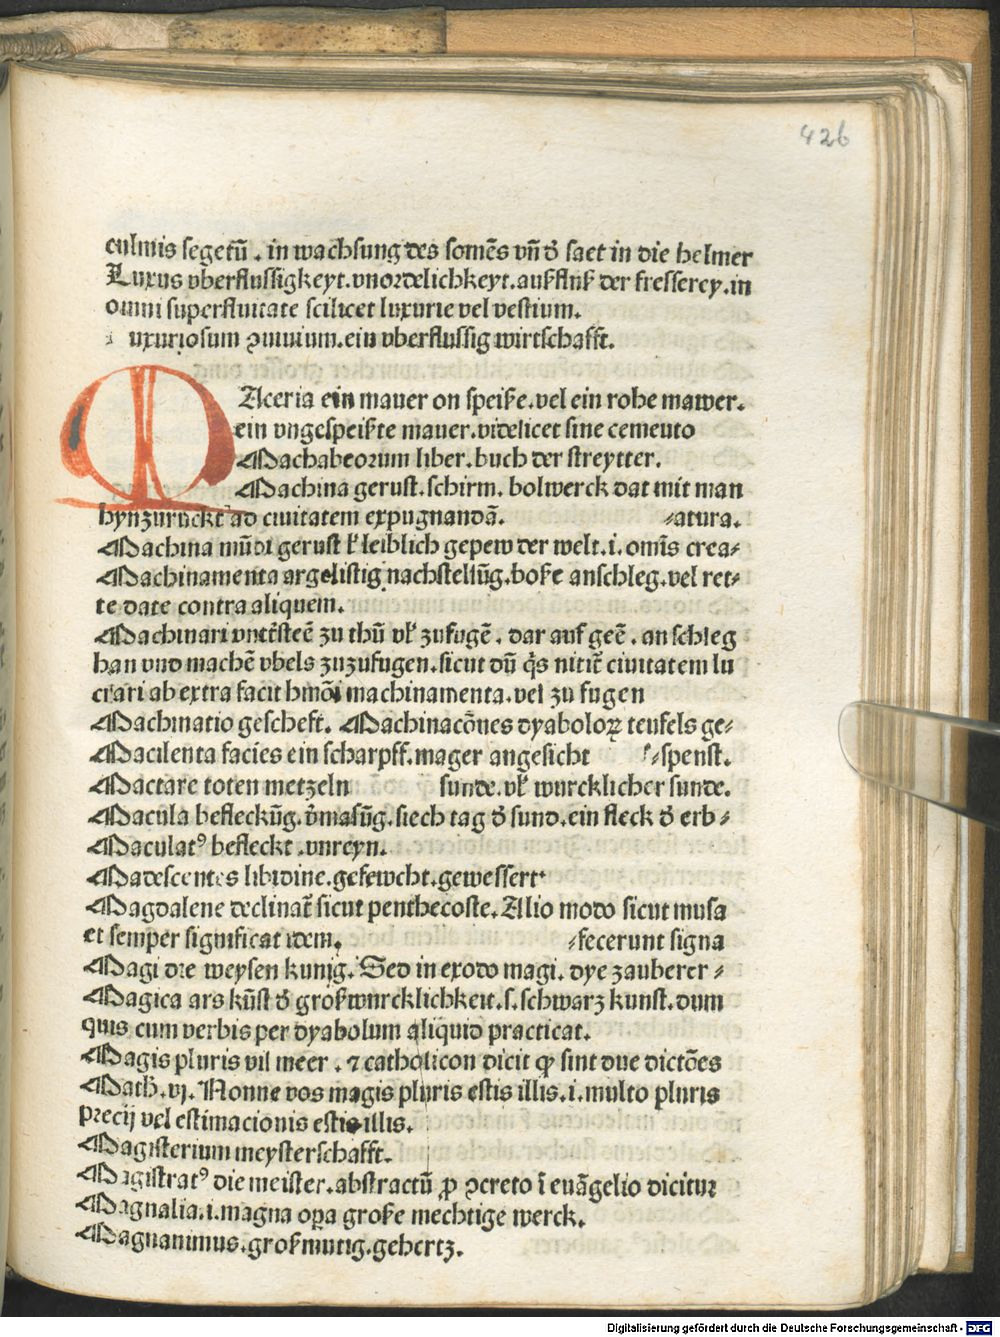 426
culmis segetū . in wachsung des somēs vn̄ d̓ saet in die helmer
Luxus vberflussigkeyt.vnordelichkeyt.außfluß der fresserey.in
omni superfluitate scilicet luxurie vel vestium.
l uxuriosum ꝯuiuium.ein vberflussig wirtschafft.
MAceria ein mauer on speiße.vel ein rohe mawer.
ein vngespeißte mauer.videlicet sine cemento
Machabeorum liber.buch der streytter.
Machina gerust.schirm. bolwerck dat mit man
hynzuruckt ad ciuitatem expugnandā. ⸗atura.
Machina mūdi gerust ł leiblich gepew der welt.i.omīs crea⸗
Machinamenta argelistig nachstellūg.boße anschleg.vel ret⸗
te date contra aliquem.
Machinari vnterstēē zu thū vł zufugē. dar auf geē. an schleg
han vnd machē vbels zuzufugen.sicut dū q̇s nitit᷑ ciuitatem lu
crari ab extra facit hmōi machinamenta.vel zu fugen
Machinatio gescheft. Machinacōnes dyaboloꝝ teufels ge⸗
Macilenta facies ein scharpff.mager angesicht ⸗spenst.
Mactare toten metzeln sunde.vł wurcklicher sunde.
Macula befleckūg.v̓masūg.siech tag d̓ sund.ein fleck d̓ erb⸗
Maculatꝰ befleckt.vnreyn.
Madescentes libidine.gefewcht.gewessert
Magdalene declinat᷑ sicut penthecoste.Alio modo sicut musa
et semper significat idem. ⸗fecerunt signa
Magi die weysen kunig. Sed in exodo magi. dye zauberer⸗
Magica ars kūst d̓ großwurcklichkeit.s.schwarz kunst.dum
quis cum verbis per dyabolum aliquid practicat.
Magis pluris vil meer . ⁊ catholicon dicit ꝙ sint due dictōes
Math̄.vj. Nonne vos magis pluris estis illis.i.multo pluris
precij vel estimacionis estis illis.
Magisterium meysterschafft.
Magistratꝰ die meister.abstractū ꝓ ꝯcreto ī euāgelio dicitur
Magnalia.i.magna oꝑa große mechtige werck.
Magnanimus.großmutig.gehertz.
Digitalisierung gefördert durch die Deutsche Forschungsgemeinschaft - DFG